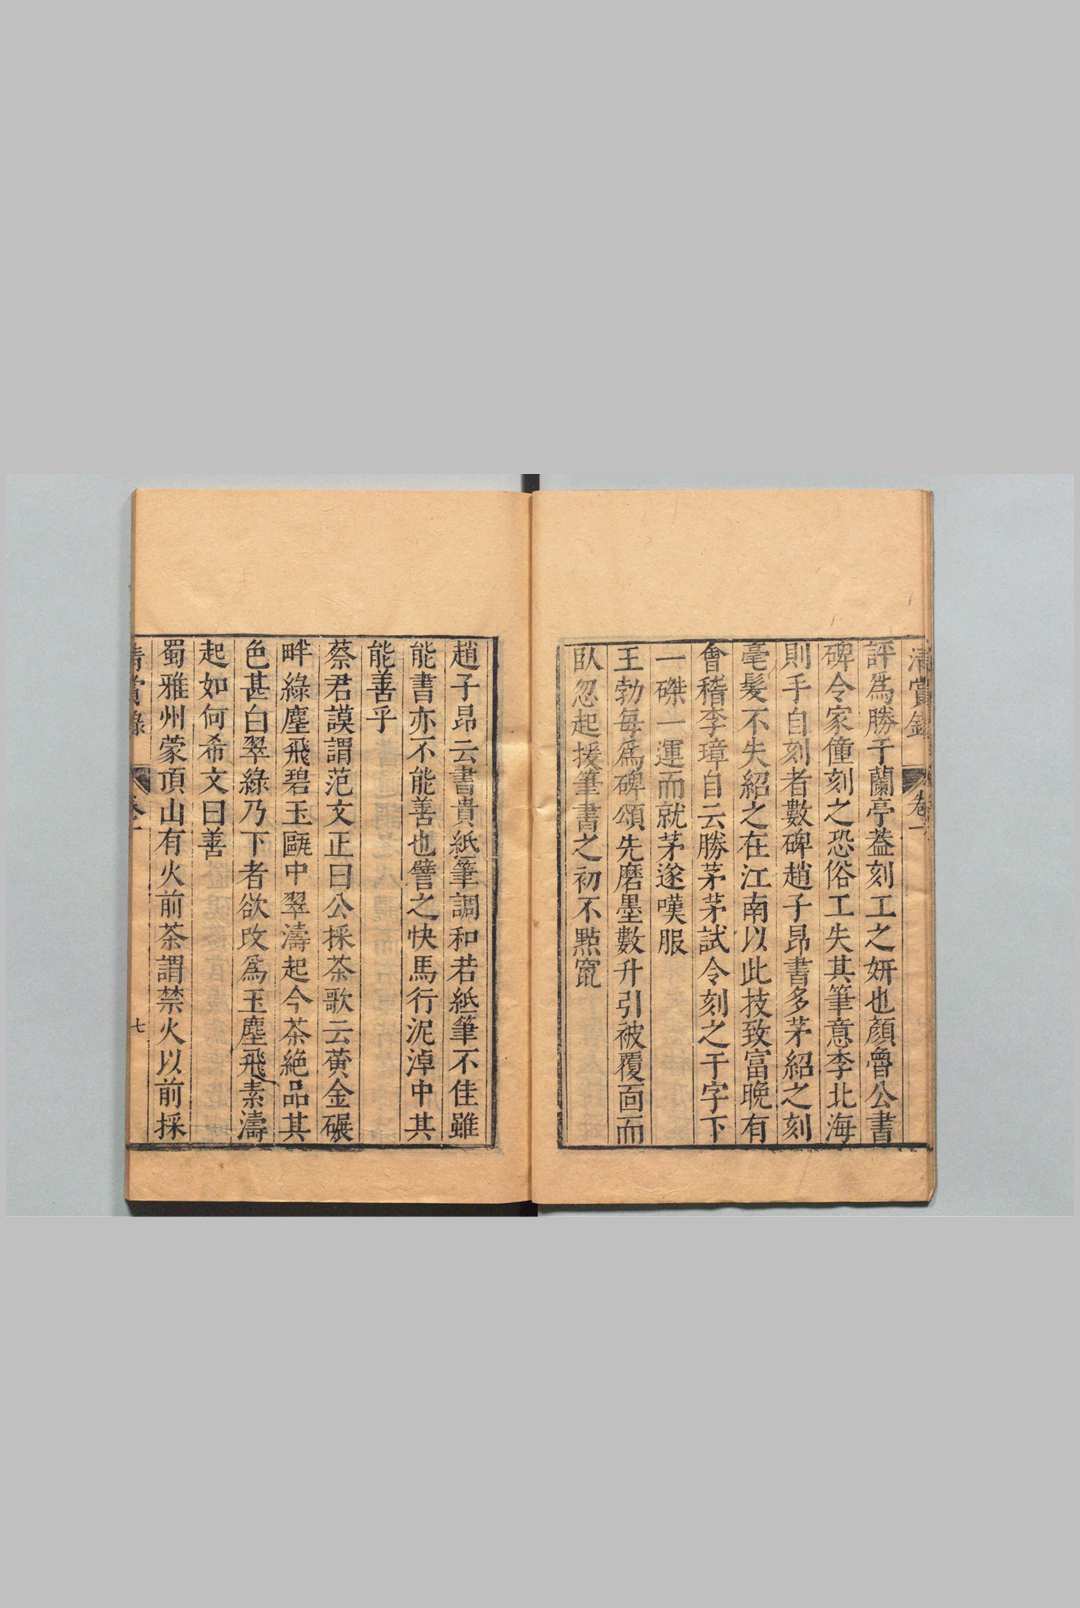 清賞錄 卷一
評爲勝于蘭亭葢刻工之妍也顏魯公書
碑令家僮刻之恐俗工失其筆意李北海
則手自刻者數碑趙子昂書多茅紹之刻
毫髮不失紹之在江南以此技致富晚有
會稽李璋自云勝茅茅試令刻之于字下
一磔一運而就茅遂嘆服
王勃每爲碑頌先磨墨數升引被覆面而
臥忽起援筆書之初不㸃竄
趙子昂云書貴紙筆調和若紙筆不佳雖
能書亦不能善也譬之快馬行泥淖中其
能善乎
蔡君謨謂范文正曰公採茶歌云黃金碾
畔綠塵飛碧玉甌中翠濤起今茶絕品其
色甚白翠綠乃下者欲改爲玉塵飛素濤
起如何希文曰善
蜀雅州蒙頂山有火前茶謂禁火以前採
清賞錄 卷一 七